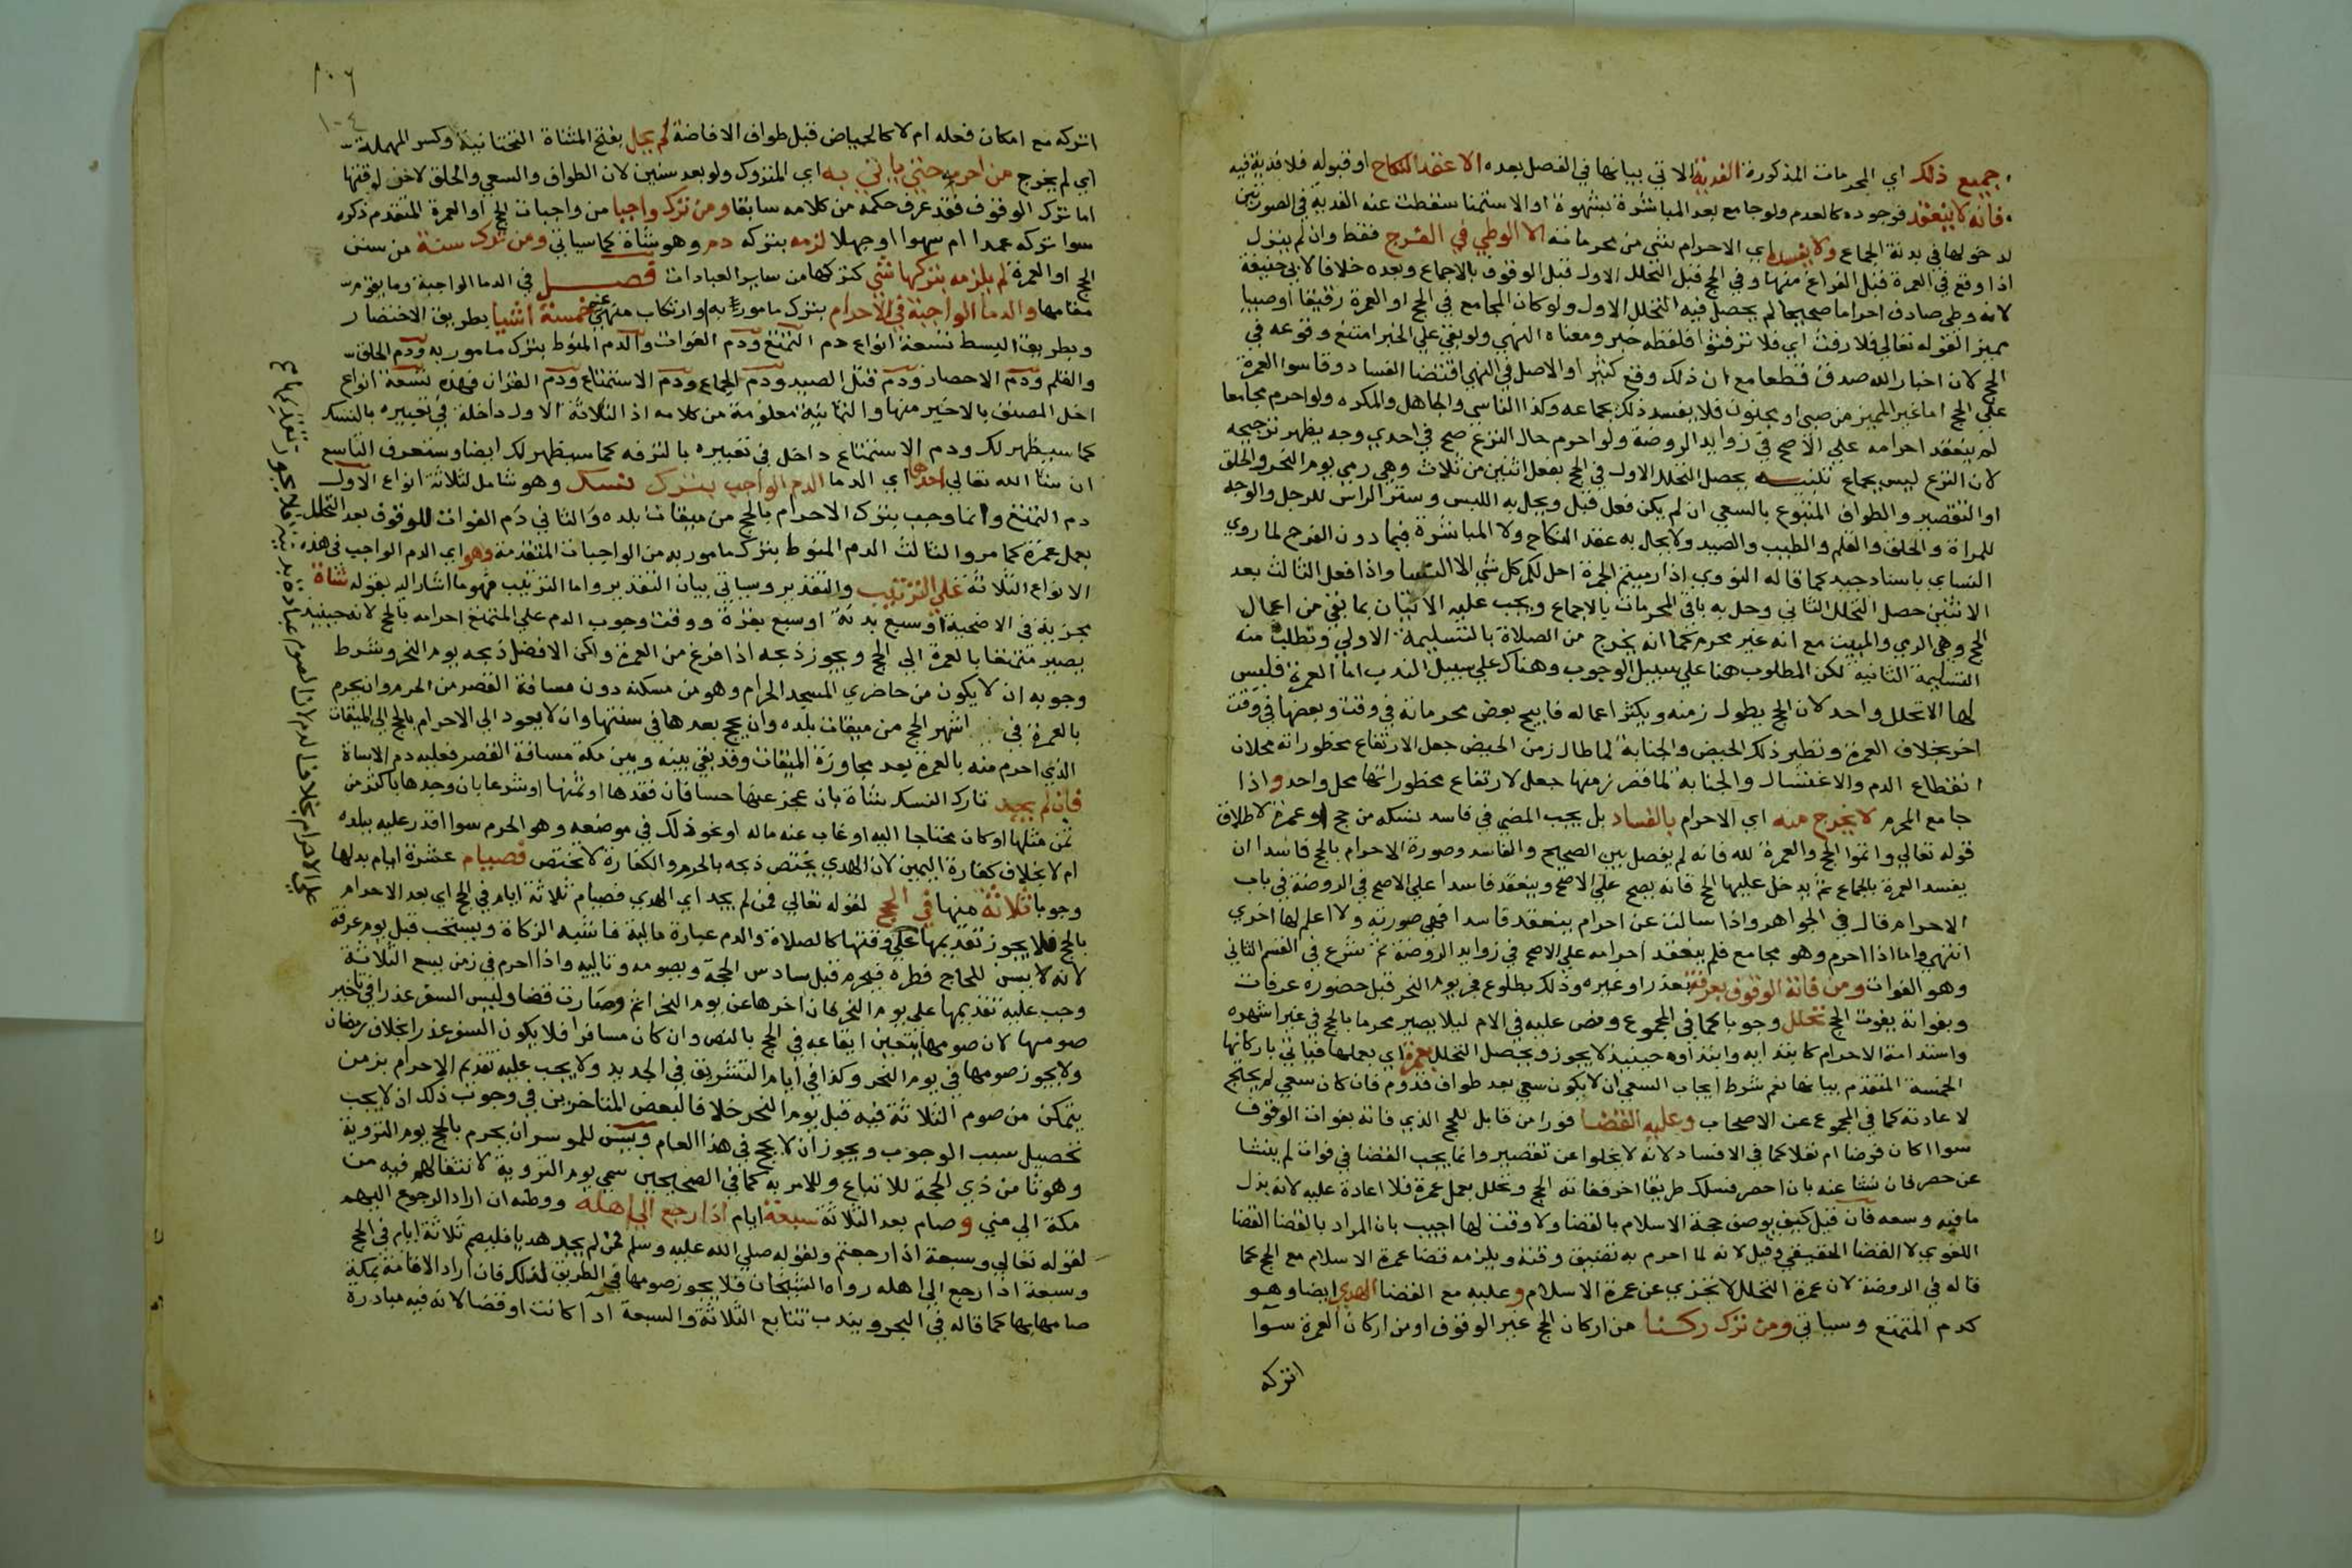 جميع ذلك اي المحرمات المذكورة الفدية الاتي بيانها في الفصل بعده الا عقد النكاح او قبوله فلا فدية فيه
فانه لا ينعقد فوجوده كالعدم ولو جامع بعد المباشرة بشهوة او الاستمنا سقطت عنه الفدية في الصورتين
لدخولها في بدنة الجماع ولا يفسده اي الاحرام بشي من محرماته الا الوطي في الفرج فقط وان لم ينزل
اذا وقع في العمرة قبل الفراغ منها وفي الحج قبل التحلل الاول قبل الوقوف بالاجماع وبعده خلافا لابي حنيفة
لانه وطي صادف احراما صحيحا لم يحصل فيه التحلل الاول ولو كان المجامع في الحج او العمرة رقيقا او صبيا
مميز القوله تعالي فلا رفث اي فلا ترفثوا فلفظه خبر ومعناه النهي ولو بقي علي الخبر امتنع وقوعه في
الحج لان اخبار الله صدق قطعا مع ان ذلك وقع كثيرا والاصل في النهي اقتضا الفساد وقاسوا العمرة
علي الحج اما غير المميز من صبي او مجنون فلا يفسد ذلك بجماعه وكذا الناسي والجاهل والمكره ولو احرم مجامعا
لم ينعقد احرامه علي الاصح في زوايد الروضة ولو احرم حال النزع صح في احدي وجه يظهر ترجيحه
لان النزع ليس بجماع تنبيه يحصل التحلل الاول في الحج بفعل اثنين من ثلاث وهي رمي يوم النحر والحلق
او التقصير والطواف المتبوع بالسعي ان لم يكن فعل قبل ويحل به اللبس وستر الراس للرجل والوجه
للمراة والحلق والقلم والطيب والصيد ولا يحل به عقد النكاح ولا المباشرة فيما دون الفرج لما روي
النساي باسناد جيد كما قاله النووي اذا رميتم الجمرة احل لكم كل شي الا النسا واذا فعل الثالث بعد
الاثنين حصل التحلل الثاني وحل به باقي المحرمات بالاجماع ويجب عليه الاتيان بما بقي من اعمال
الحج وهي الرمي والمبيت مع انه غير محرم كما انه يخرج من الصلاة بالتسليمة الاولي وتطلب منه
التسليمة الثانية لكن المطلوب هنا علي سبيل الوجوب وهناك علي سبيل الندب اما العمرة فليس
لها الا تحلل واحد لان الحج يطول زمنه ويكثر اعماله فابيح بعض محرماته في وقت وبعضها في وقت
اخر بخلاف العمرة ونظير ذلك الحيض والجنابة لما طال زمن الحيض جعل لارتفاع محظوراته محلان
انقطاع الدم والاغتسال والجنابة لما قصر زمنها جعل لارتفاع محظوراتها محل واحد واذا
جامع المحرم لا يخرج منه اي الاحرام بالفساد بل يجب المضي في فاسد نسكه من حج او عمرة لاطلاق
قوله تعالي واتموا الحج والعمرة لله فانه لم يفصل بين الصحيح والفاسد وصورة الاحرام بالحج فاسدا ان
يفسد العمرة بالجماع ثم يدخل عليها الحج فانه يصح علي الاصح وينعقد فاسدا علي الاصح في الروضة في باب
الاحرام قال في الجواهر واذا سالت عن احرام ينعقد فاسدا فهي صورته ولا اعلم لها اخري
انتهي واما اذا احرم وهو مجامع فلم ينعقد احرامه علي الاصح في زوايد الروضة ثم شرع في القسم الثاني
وهو الفوات ومن فاته الوقوف بعرفة بعذر او غيره وذلك بطلوع فجر يوم النحر قبل حضوره عرفات
وبفواته يفوت الحج تحلل وجوبا كما في المجموع ونص عليه في الام ليلا يصير محرما بالحج في غير اشهره
واستدامة الاحرام كابتدايه وابتداوه حينيذ لا يجوز ويحصل التحلل بعمرة اي بعملها فياتي باركانها
الخمسة المتقدم بيانها نعم شرط ايجاب السعي ان لا يكون سعي بعد طواف قدوم فان كان سعي لم يحتج
لاعادته كما في المجموع عن الاصحاب وعليه القضا فورا من قابل للحج الذي فاته بفوات الوقوف
سوا كان فرضا ام نفلا كما في الافساد لانه لا يخلوا عن تقصير وانما يجب القضا في فوات لم ينشا
عن حصر فان نشا عنه بان احصر فسلك طريقا اخر ففاته الحج وتحلل بعمل عمرة فلا اعادة عليه لانه بذل
ما فيه وسعه فان قيل كيف يوصف حجة الاسلام بالقضا ولا وقت لها اجيب بان المراد بالقضا القضا
اللغوي لا القضا الحقيقي وقيل لانه لما احرم به تضيق وقته ويلزمه قضا عمرة الاسلام مع الحج كما
قاله في الروضة لان عمرة التحلل لا تجزي عن عمرة الاسلام وعليه مع القضا الهدي ايضا وهو
كدم المتمتع وسياتي ومن ترك ركنا من اركان الحج غير الوقوف او من اركان العمرة سوا
اتركه
١٠٦
١٠٤
اتركه مع امكان فعله ام لا كالحايض قبل طواف الافاضة لم يحل بفتح المثناة التحتانية وكسر المهملة
اي لم يخرج من احرامه حتي ياتي به اي المتروك ولو بعد سنين لان الطواف والسعي والحلق لا اخر لوقتها
اما ترك الوقوف فقد عرف حكمه من كلامه سابقا ومن ترك واجبا من واجبات الحج او العمرة المتقدم ذكره
سوا تركه عمدا ام سهوا او جهلا لزمه بتركه دم وهو شاة كما سياتي ومن ترك سنة من سنن
الحج او العمرة لم يلزمه بتركها شي كتركها من ساير العبادات فصل في الدما الواجبة وما يقوم
مقامها والدما الواجبة في الاحرام بترك مامور به او ارتكاب منهي عنه خمسة اشيا بطريق الاختصار
وبطريق البسط تسعة انواع دم التمتع ودم الفوات والدم المنوط بترك مامور به ودم الحلق
والقلم ودم الاحصار ودم قتل الصيد ودم الجماع ودم الاستمتاع ودم القران فهذه تسعة انواع
اخل المصنف بالاخير منها والثمانية معلومة من كلامه اذ الثلاثة الاول داخلة في تعبيره بالنسك
كما سيظهر لك ودم الاستمتاع داخل في تعبيره بالترفه كما سيظهر لك ايضا وستعرف التاسع
ان شا الله تعالي احدها اي الدما الدم الواجب بترك نسك وهو شامل لثلاثة انواع الاول
دم التمتع وانما وجب بترك الاحرام بالحج من ميقات بلده والثاني دم الفوات للوقوف بعد التحلل
بعمل عمرة كما مر والثالث الدم المنوط بترك مامور به من الواجبات المتقدمة وهو اي الدم الواجب في هذه
الانواع الثلاثة علي الترتيب والتقدير وسياتي بيان التقدير واما الترتيب فهو ما اشار اليه بقوله شاة
مجزية في الاضحية او سبع بدنة او سبع بقرة ووقت وجوب الدم علي المتمتع احرامه بالحج لانه حينيذ
يصير متمتعا بالعمرة الي الحج ويجوز ذبحه اذا فرغ من العمرة ولكن الافضل ذبحه يوم النحر وشرط
وجوبه ان لا يكون من حاضري المسجد الحرام وهو من مسكنه دون مسافة القصر من الحرم وان يحرم
بالعمرة في اشهر الحج من ميقات بلده وان يحج بعدها في سنتها وان لا يعود الي الاحرام بالحج الي الميقات
الذي احرم منه بالعمرة بعد مجاوزة الميقات وقد بقي بينه وبين مكة مسافة القصر فعليه دم الاساة
فان لم يجد تارك النسك شاة بان عجز عنها حسا فان فقدها او ثمنها او شرعا بان وجدها باكثر من
ثمن مثلها او كان محتاجا اليه او غاب عنه ماله او نحو ذلك في موضعه وهو الحرم سوا اقدر عليه ببلده
ام لا بخلاف كفارة اليمين لان الهدي يختص ذبحه بالحرم والكفارة لا تختص فصيام عشرة ايام بدلها
وجوبا ثلاثة منها في الحج لقوله تعالي فمن لم يجد اي الهدي فصيام ثلاثة ايام في الحج اي بعد الاحرام
بالحج فلا يجوز تقديمها علي وقتها كالصلاة والدم عبارة مالية فاشبه الزكاة ويستحب قبل يوم عرفة
لانه لا يسن للحاج فطره فيحرم قبل سادس الحجة ويصومه وتاليه واذا احرم في زمن يسع الثلاثة
وجب عليه تقديمها علي يوم النحر فان اخرها عن يوم النحر اثم وصارت قضا وليس السفر عذرا في تاخير
صومها لان صومها يتعين ايقاعه في الحج بالنص وان كان مسافرا فلا يكون السفر عذرا بخلاف رمضان
ولا يجوز صومها في يوم النحر وكذا في ايام التشريق في الجديد ولا يجب عليه تقديم الاحرام بزمن
يتمكن من صوم الثلاثة فيه قبل يوم النحر خلافا لبعض المتاخرين في وجوب ذلك اذ لا يجب
تحصيل سبب الوجوب ويجوز ان لا يحج في هذا العام ويسن للموسر ان يحرم بالحج يوم التروية
وهو ثامن ذي الحجة للاتباع وللامر به كما في الصحيحين سمي يوم التروية لانتقالهم فيه من
مكة الي مني وصام بعد الثلاثة سبعة ايام اذا رجع الي اهله ووطنه ان اراد الرجوع اليهم
لقوله تعالي وسبعة اذا رجعتم ولقوله صلي الله عليه وسلم فمن لم يجد هديا فليصم ثلاثة ايام في الحج
وسبعة اذا رجع الي اهله رواه الشيخان فلا يجوز صومها في الطريق لذلك فان اراد الاقامة بمكة
صامها بها كما قاله في البحر ويندب تتابع الثلاثة والسبعة ادآ كانت او قضا لانه فيه مبادرة